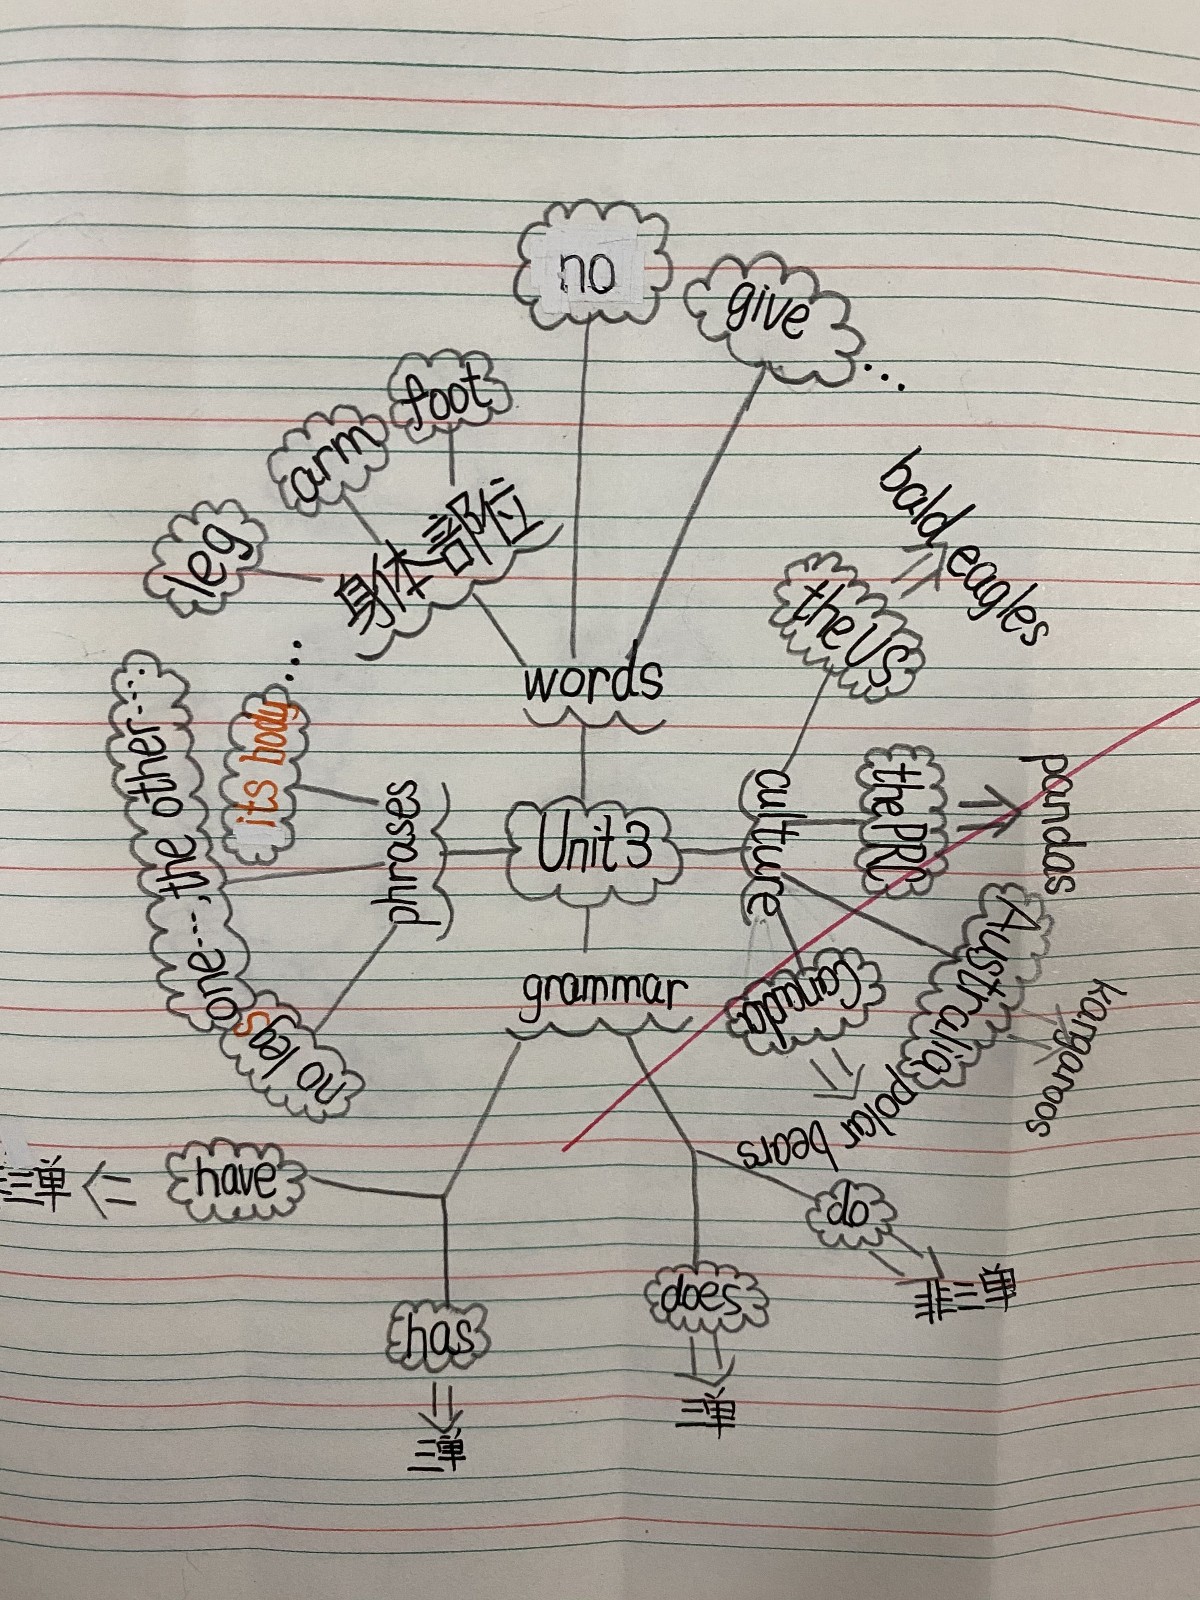 no
give
...
foot
arm
leg
身体部位
...
words
bald eagles
the US
culture
the PRC
pandas
Australia
kangaroos
Canada
polar bears
Unit 3
phrases
its body
one---, the other---.
no legs
grammar
have
三单
has
三单
does
三单
do
非三单